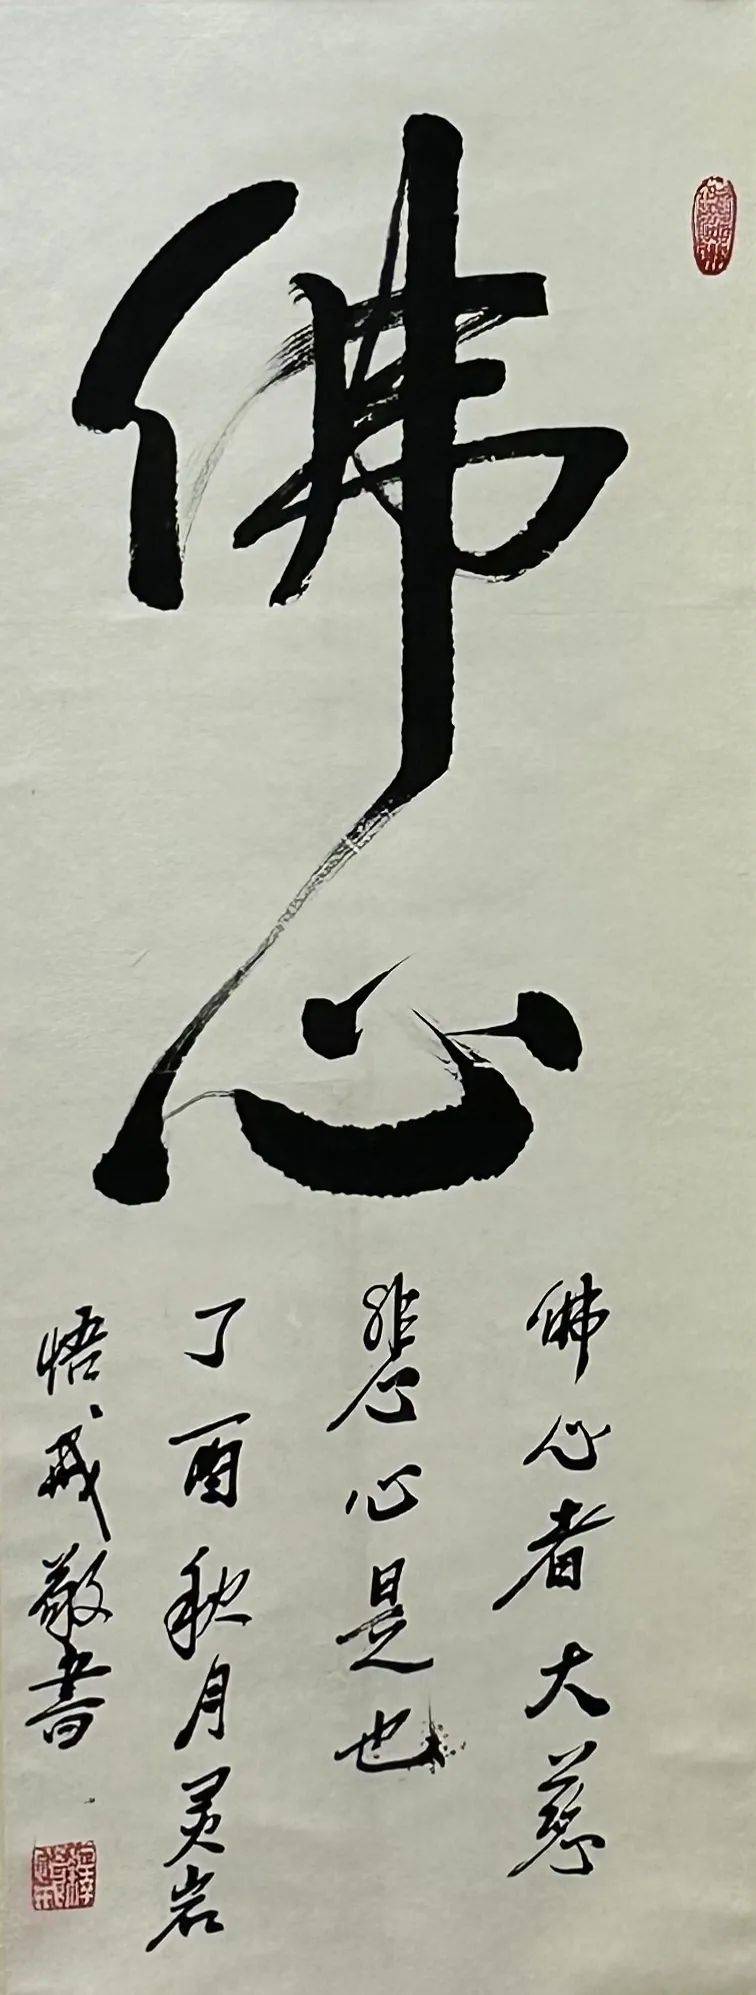 佛心
佛心者大慈
悲心是也
丁酉秋月灵岩
悟戒敬書